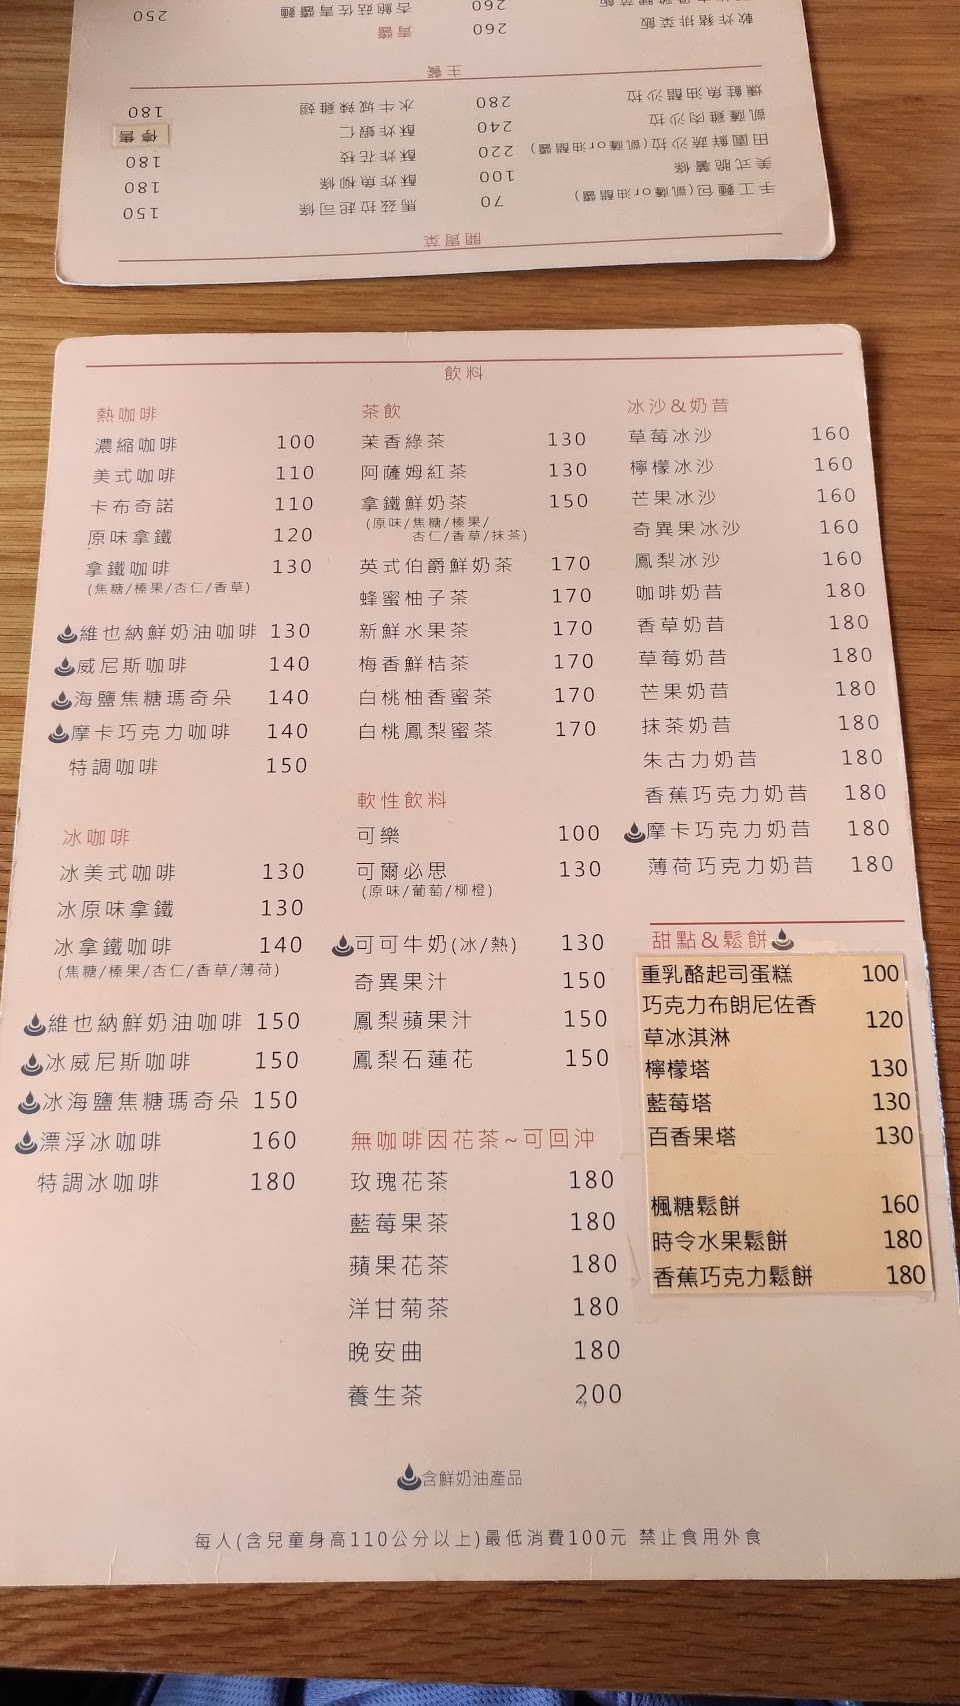 開胃菜
手工麵包(凱薩or油醋醬) 70
美式脆薯條 100
田園鮮蔬沙拉(凱薩or油醋醬) 220
凱薩雞肉沙拉 240
燻鮭魚油醋沙拉 280
馬茲拉起司條 150
酥炸魚柳條 180
酥炸花枝 180
酥炸蝦仁 停售
水牛城辣雞翅 180
主餐
軟炸豬排菜飯 260
260
青醬
杏鮑菇佐青醬麵 250
飲料
熱咖啡
濃縮咖啡 100
美式咖啡 110
卡布奇諾 110
原味拿鐵 120
拿鐵咖啡 130
(焦糖/榛果/杏仁/香草)
維也納鮮奶油咖啡 130
威尼斯咖啡 140
海鹽焦糖瑪奇朵 140
摩卡巧克力咖啡 140
特調咖啡 150
冰咖啡
冰美式咖啡 130
冰原味拿鐵 130
冰拿鐵咖啡 140
(焦糖/榛果/杏仁/香草/薄荷)
維也納鮮奶油咖啡 150
冰威尼斯咖啡 150
冰海鹽焦糖瑪奇朵 150
漂浮冰咖啡 160
特調冰咖啡 180
茶飲
茉香綠茶 130
阿薩姆紅茶 130
拿鐵鮮奶茶 150
(原味/焦糖/榛果/
杏仁/香草/抹茶)
英式伯爵鮮奶茶 170
蜂蜜柚子茶 170
新鮮水果茶 170
梅香鮮桔茶 170
白桃柚香蜜茶 170
白桃鳳梨蜜茶 170
軟性飲料
可樂 100
可爾必思 130
(原味/葡萄/柳橙)
可可牛奶(冰/熱) 130
奇異果汁 150
鳳梨蘋果汁 150
鳳梨石蓮花 150
無咖啡因花茶~可回沖
玫瑰花茶 180
藍莓果茶 180
蘋果花茶 180
洋甘菊茶 180
晚安曲 180
養生茶 200
冰沙&奶昔
草莓冰沙 160
檸檬冰沙 160
芒果冰沙 160
奇異果冰沙 160
鳳梨冰沙 160
咖啡奶昔 180
香草奶昔 180
草莓奶昔 180
芒果奶昔 180
抹茶奶昔 180
朱古力奶昔 180
香蕉巧克力奶昔 180
摩卡巧克力奶昔 180
薄荷巧克力奶昔 180
甜點&鬆餅
重乳酪起司蛋糕 100
巧克力布朗尼佐香
草冰淇淋 120
檸檬塔 130
藍莓塔 130
百香果塔 130
楓糖鬆餅 160
時令水果鬆餅 180
香蕉巧克力鬆餅 180
含鮮奶油產品
每人(含兒童身高110公分以上)最低消費100元 禁止食用外食